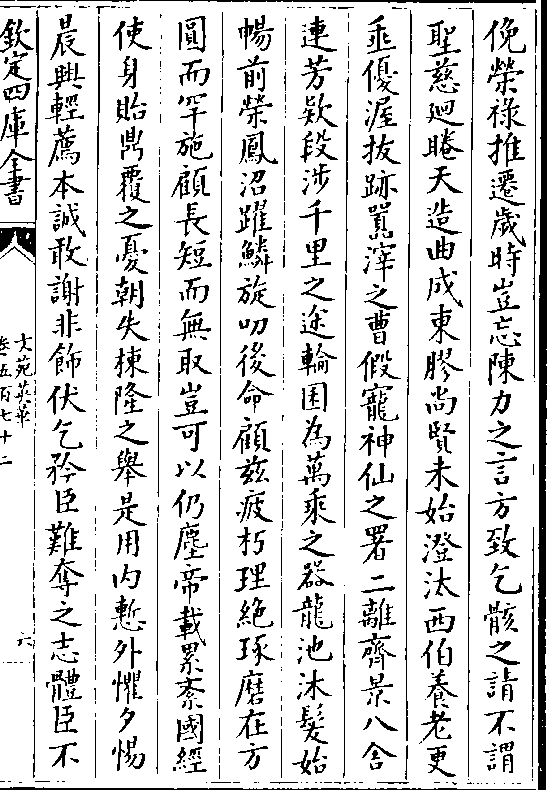 俛榮祿推遷歲時豈忘陳力之言方致乞骸之請不謂
聖慈廻睠天造曲成東膠尚賢未始澄汰西伯養老更
垂優渥拔跡嚣滓之曹假寵神仙之署二離齊景八舍
連芳欵段涉千里之途輪囷為萬乘之器龍池沐髮始
暢前榮鳳沼躍鱗旋叨後命顧兹疲朽理絶琢磨在方
圓而罕施顧長短而無取豈可以仍塵帝載累紊國經
使身貽鼎覆之憂朝失棟隆之舉是用内慙外懼夕惕
晨興輕薦本誠敢謝非飾伏乞矜臣難奪之志體臣不
欽定四庫全書
文苑英華
卷五百七十二
六